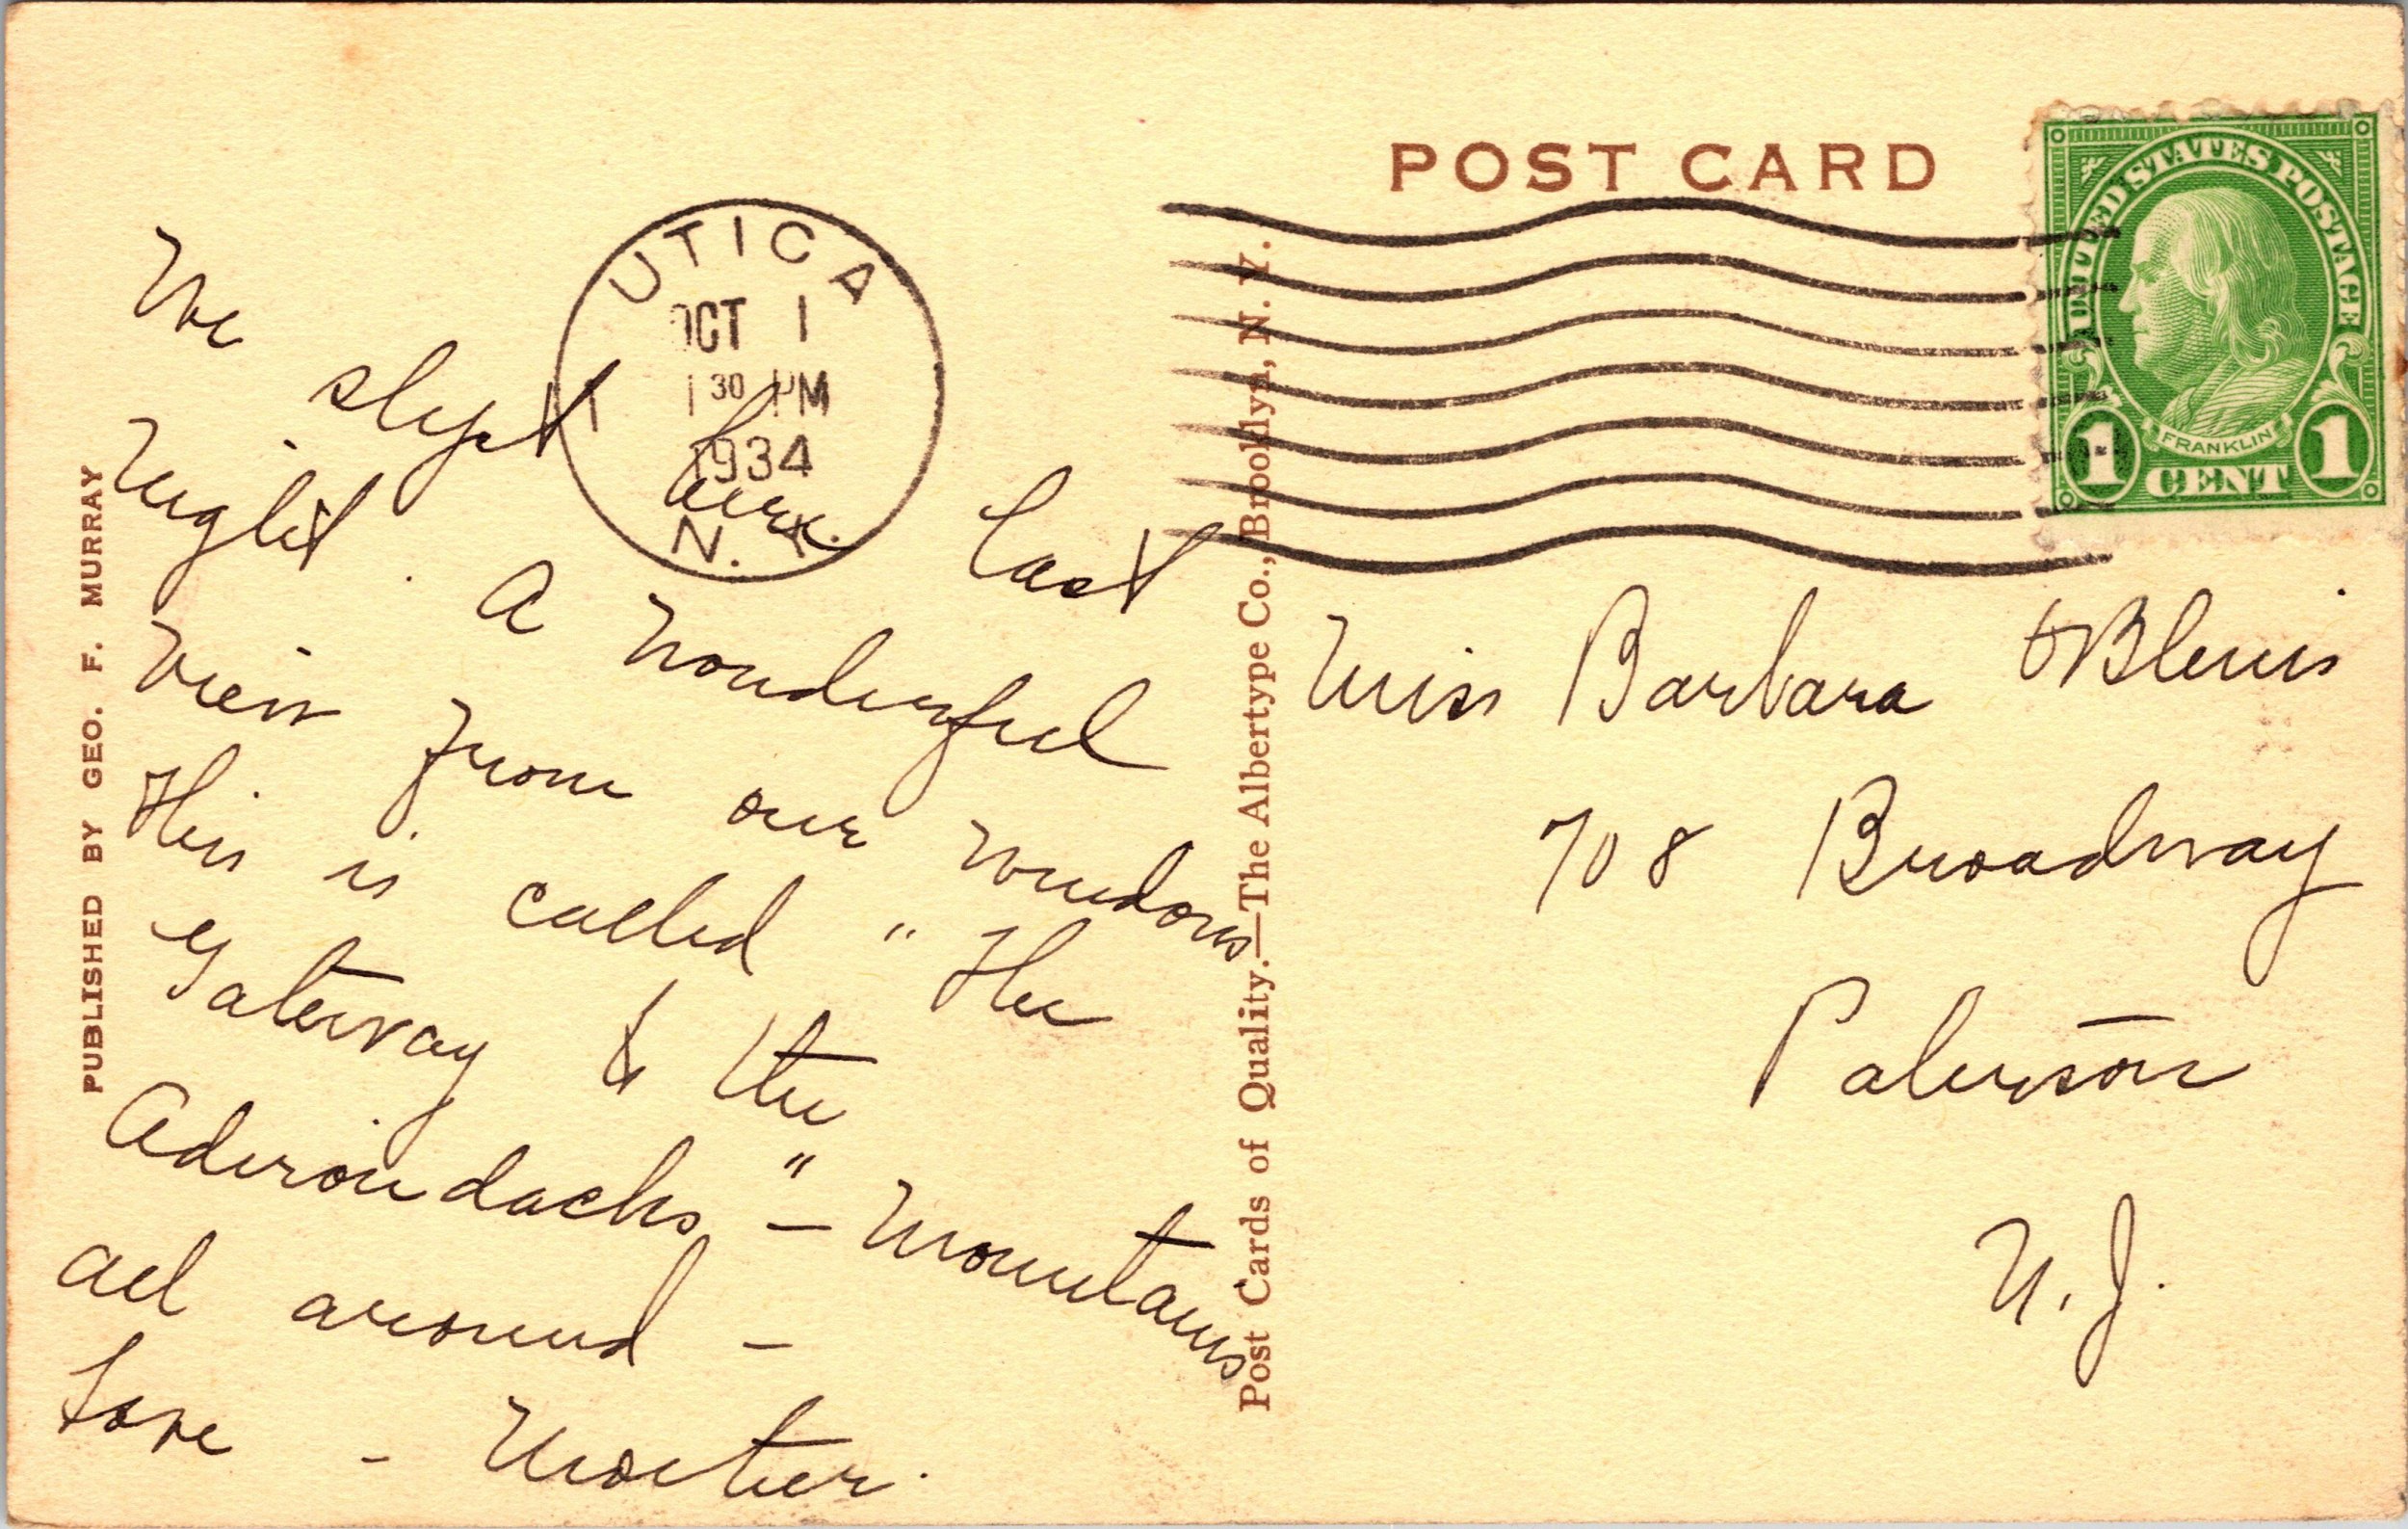 POST CARD
UTICA
OCT 1
1 30 PM
1934
N.Y.
UNITED STATES POSTAGE
FRANKLIN
1 CENT 1
PUBLISHED BY GEO. F. MURRAY
Post Cards of Quality.—The Albertype Co., Brooklyn, N. Y.
We slept here last
night. A wonderful
view from our windows
This is called "The
Gateway to the
Adirondacks" – Mountains
all around –
Love – Mother.
Miss Barbara
708 Broadway
Paterson
N.J.